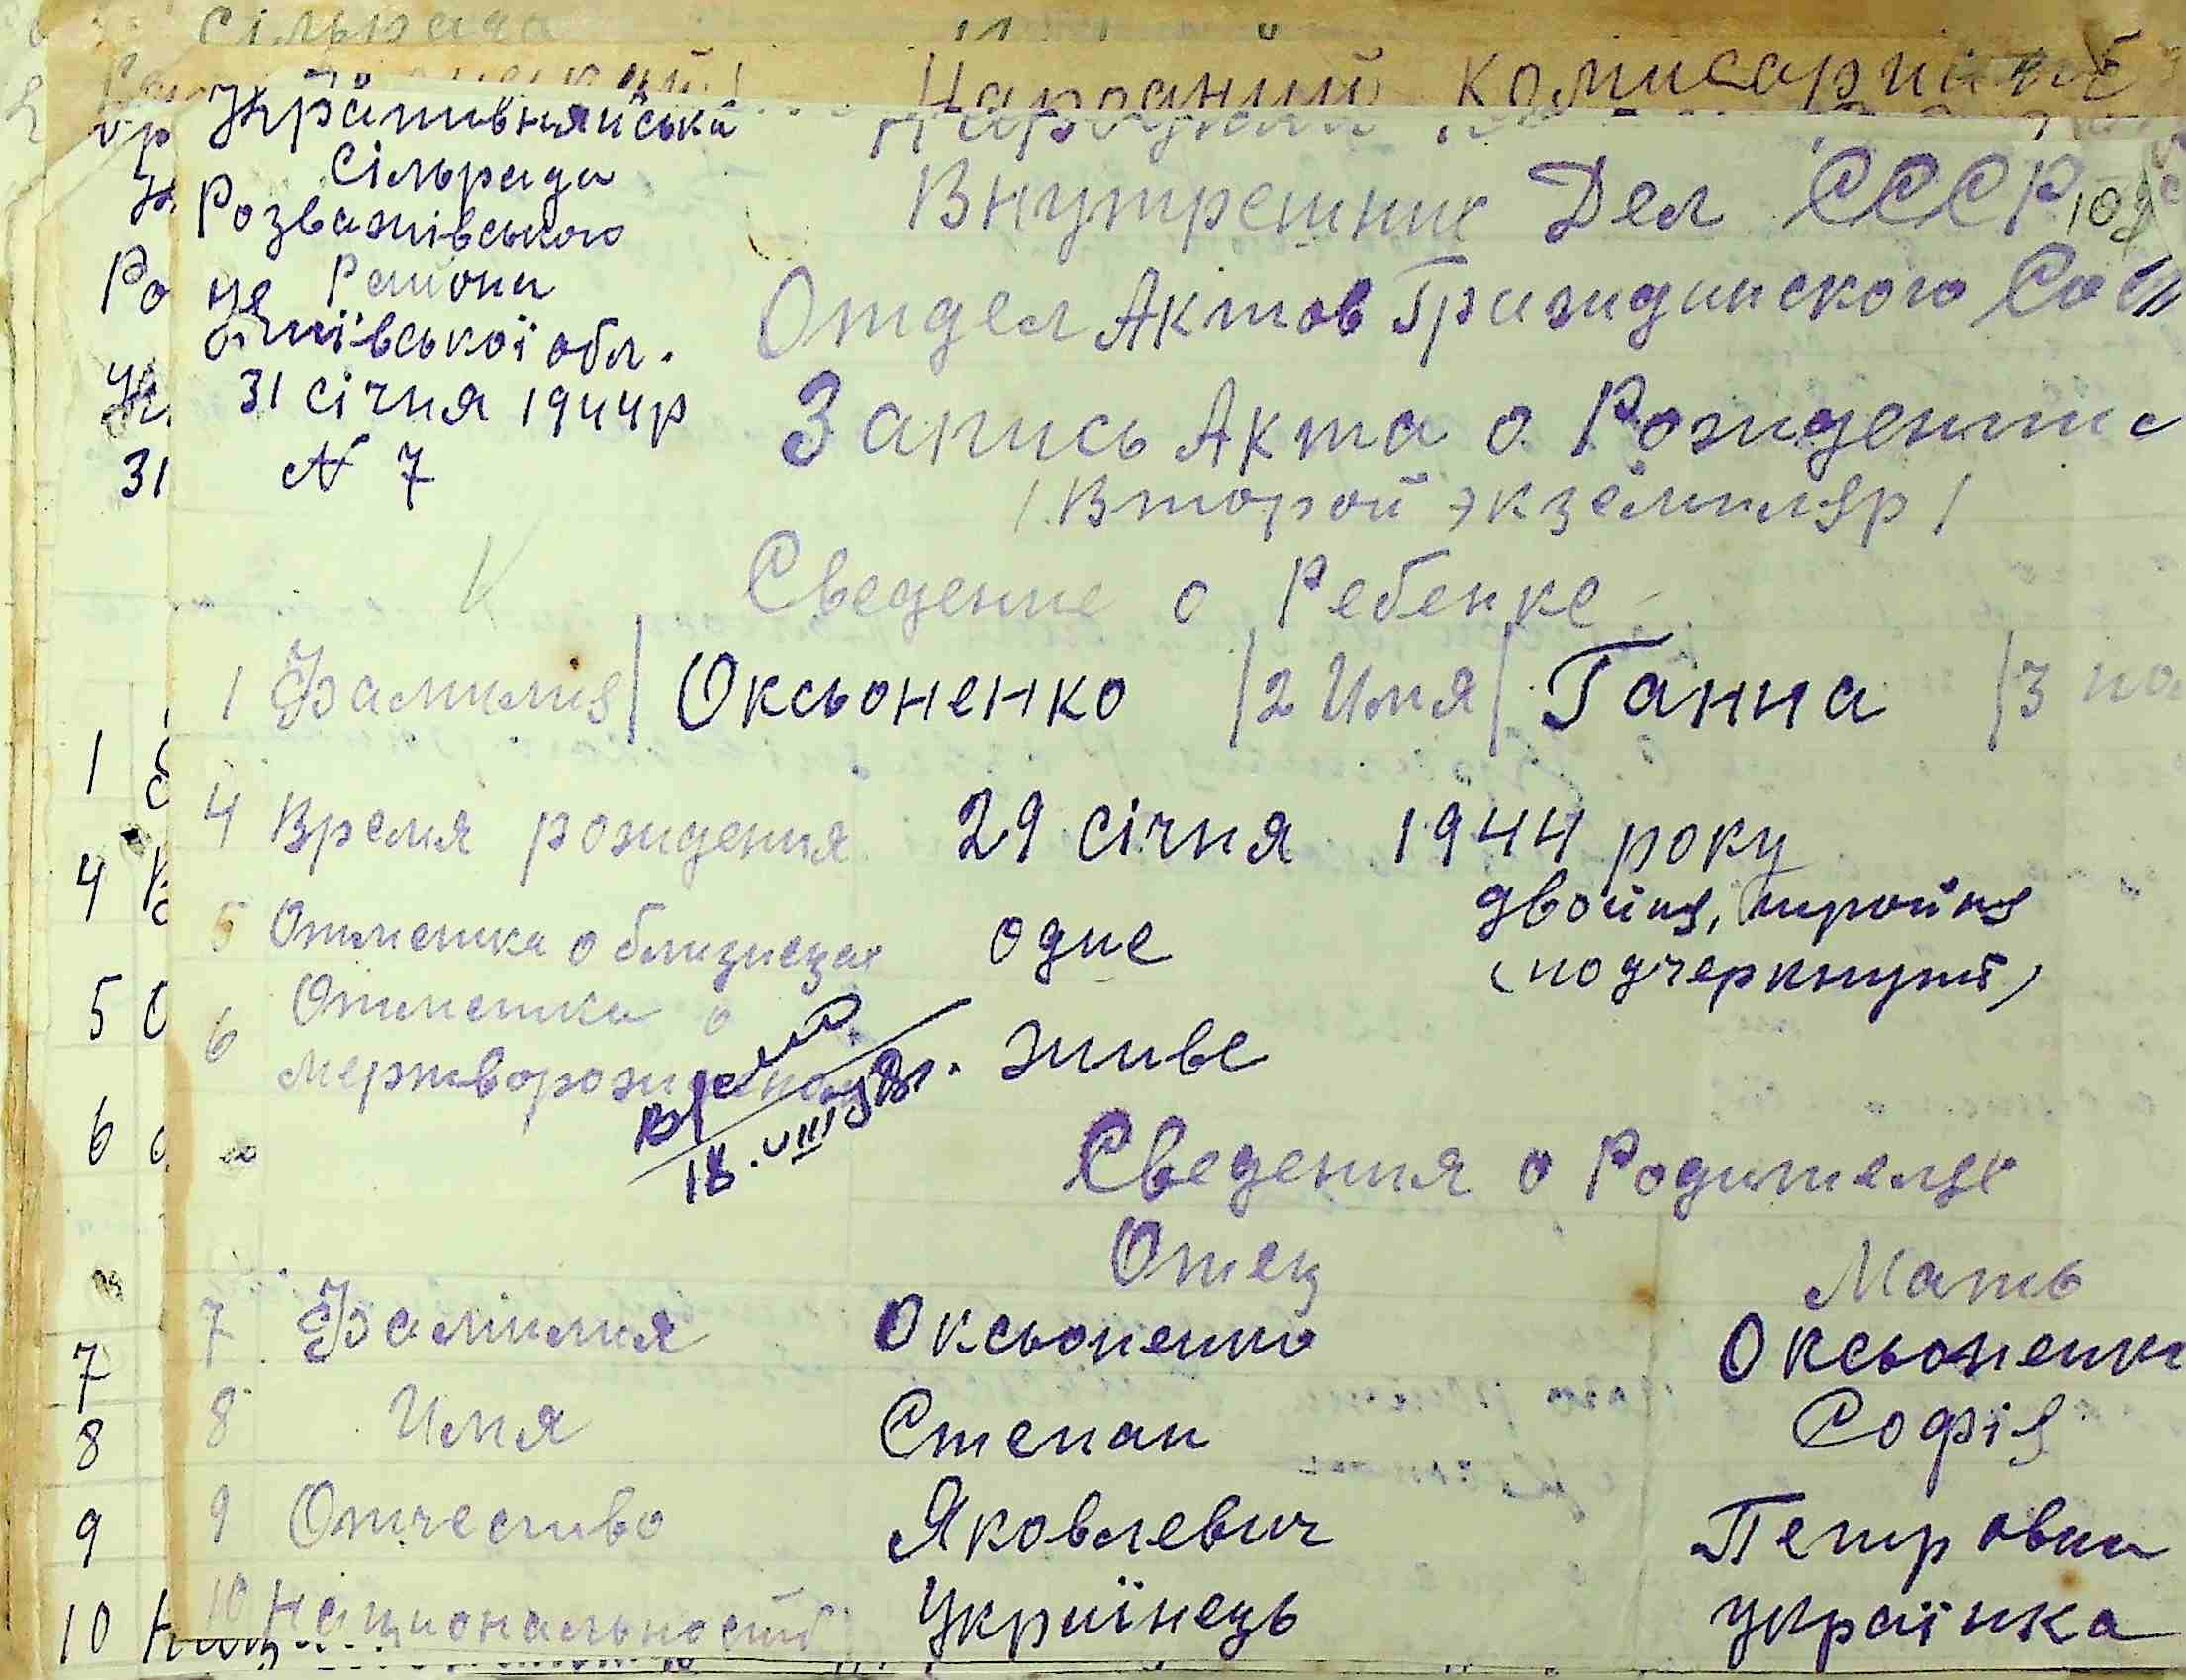 сільрада
Народний комисариат
Кративнянська
Сільрада
Розважівського
Района
Київської обл.
31 січня 1944р
N 7
Внутрешние Дел СССР
108
Отдел Актов Гражданского Сос
Запись Акта о Рождении
/Второй экземпляр/
Сведение о Ребенке
1 Фамилия / Оксьоненко / 2 Имя / Ганна / 3 по
4 Время рождения 29 січня 1944 року
двойня, тройня
5 Отметка о близнецах одне
(подчеркнуть)
6 Отметка о
мертворожденных живе
18.VIII
Сведения о Родителях
Отец Мать
7 Фамилия Оксьоненко Оксьоненк
8 Имя Степан Софія
9 Отчество Яковлевич Петровна
10 Национальность Українець українка
Ро
31
1
4
5
6
7
8
9
10